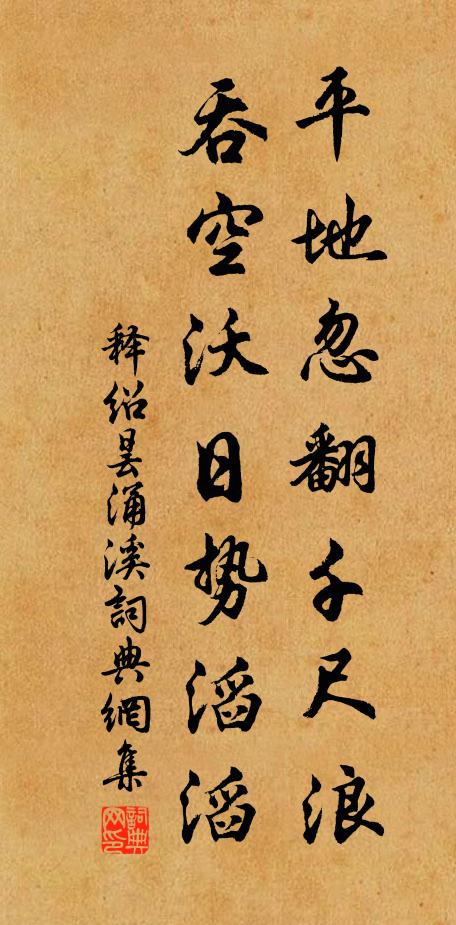 平地忽翻千尺浪
吞空沃日势滔滔
释绍昙涌溪詞典網集
詞典网印